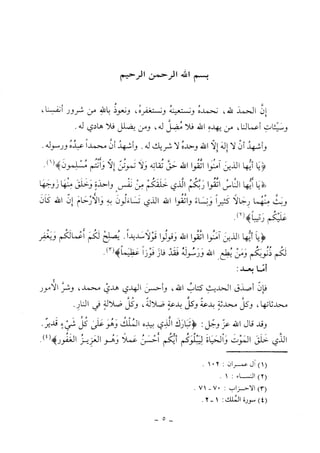 بسم الله الرحمن الرحيم
إن الحمد لله، نحمده ونستعينه ونستغفره، ونعوذ بالله من شرور أنفسنا،
وسيئات أعمالنا، من يهده الله فلا مُضِلَّ له، ومن يضلل فلا هادي له.
وأشهد أنْ لا إله إلاَّ الله وحدهُ لا شريك له. وأشهد أنَّ محمداً عبدُه ورسوله.
﴿يَا أَيُّهَا الذينَ آمَنُوا اتَّقُوا الله حَقَّ تُقَاتِهِ وَلاَ تَمُوتُنَّ إِلاَّ وَأَنْتُم مُسْلِمُونَ﴾(١).
﴿يَا أَيُّهَا النَّاسُ اتَّقُوا رَبَّكُمُ الَّذِي خَلَقَكُمْ مِنْ نَفْسٍ وَاحِدَةٍ وَخَلَقَ مِنْهَا زَوْجَهَا
وَبَثَّ مِنْهُمَا رِجَالاً كَثِيراً وَنِسَاءً وَاتَّقُوا الله الَّذِي تَسَاءَلُونَ بِهِ وَالأَرْحَامَ إِنَّ الله كَانَ
عَلَيْكُمْ رَقِيباً﴾(٢).
﴿يَا أَيُّهَا الذينَ آمَنُوا اتَّقُوا الله وَقُولُوا قَوْلاً سَدِيداً. يُصْلِحْ لَكُمْ أَعْمَالَكُمْ وَيَغْفِرْ
لَكُمْ ذُنُوبَكُمْ وَمَنْ يُطِعِ الله وَرَسُولَهُ فَقَدْ فَازَ فَوْزاً عَظِيماً﴾(٣).
أمّا بعد:
فإن أصدق الحديث كتاب الله، وأحسن الهدي هدي محمد، وشرّ الأمور
محدثاتها، وكلّ محدثةٍ بدعة وكلَّ بدعةٍ ضلالة، وكلّ ضلالةٍ في النار.
وقد قال الله عزّ وجلّ: ﴿تَبَارَكَ الَّذِي بِيَدِهِ المُلْكُ وَهُوَ عَلَى كُلِّ شَيْءٍ قَدِيرٌ.
الَّذِي خَلَقَ المَوْتَ وَالْحَيَاةَ لِيَبْلُوَكُمْ أَيُّكُمْ أَحْسَنُ عَمَلاً وَهُوَ العَزِيزُ الغَفُورُ﴾(٤).
(١) آل عمران: ١٠٢.
(٢) النساء: ١.
(٣) الأحزاب: ٧٠ - ٧١.
(٤) سورة الملك: ١ - ٢.
- ٥ -